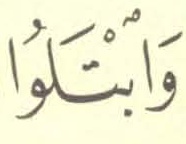 وَٱبْتَلُوا